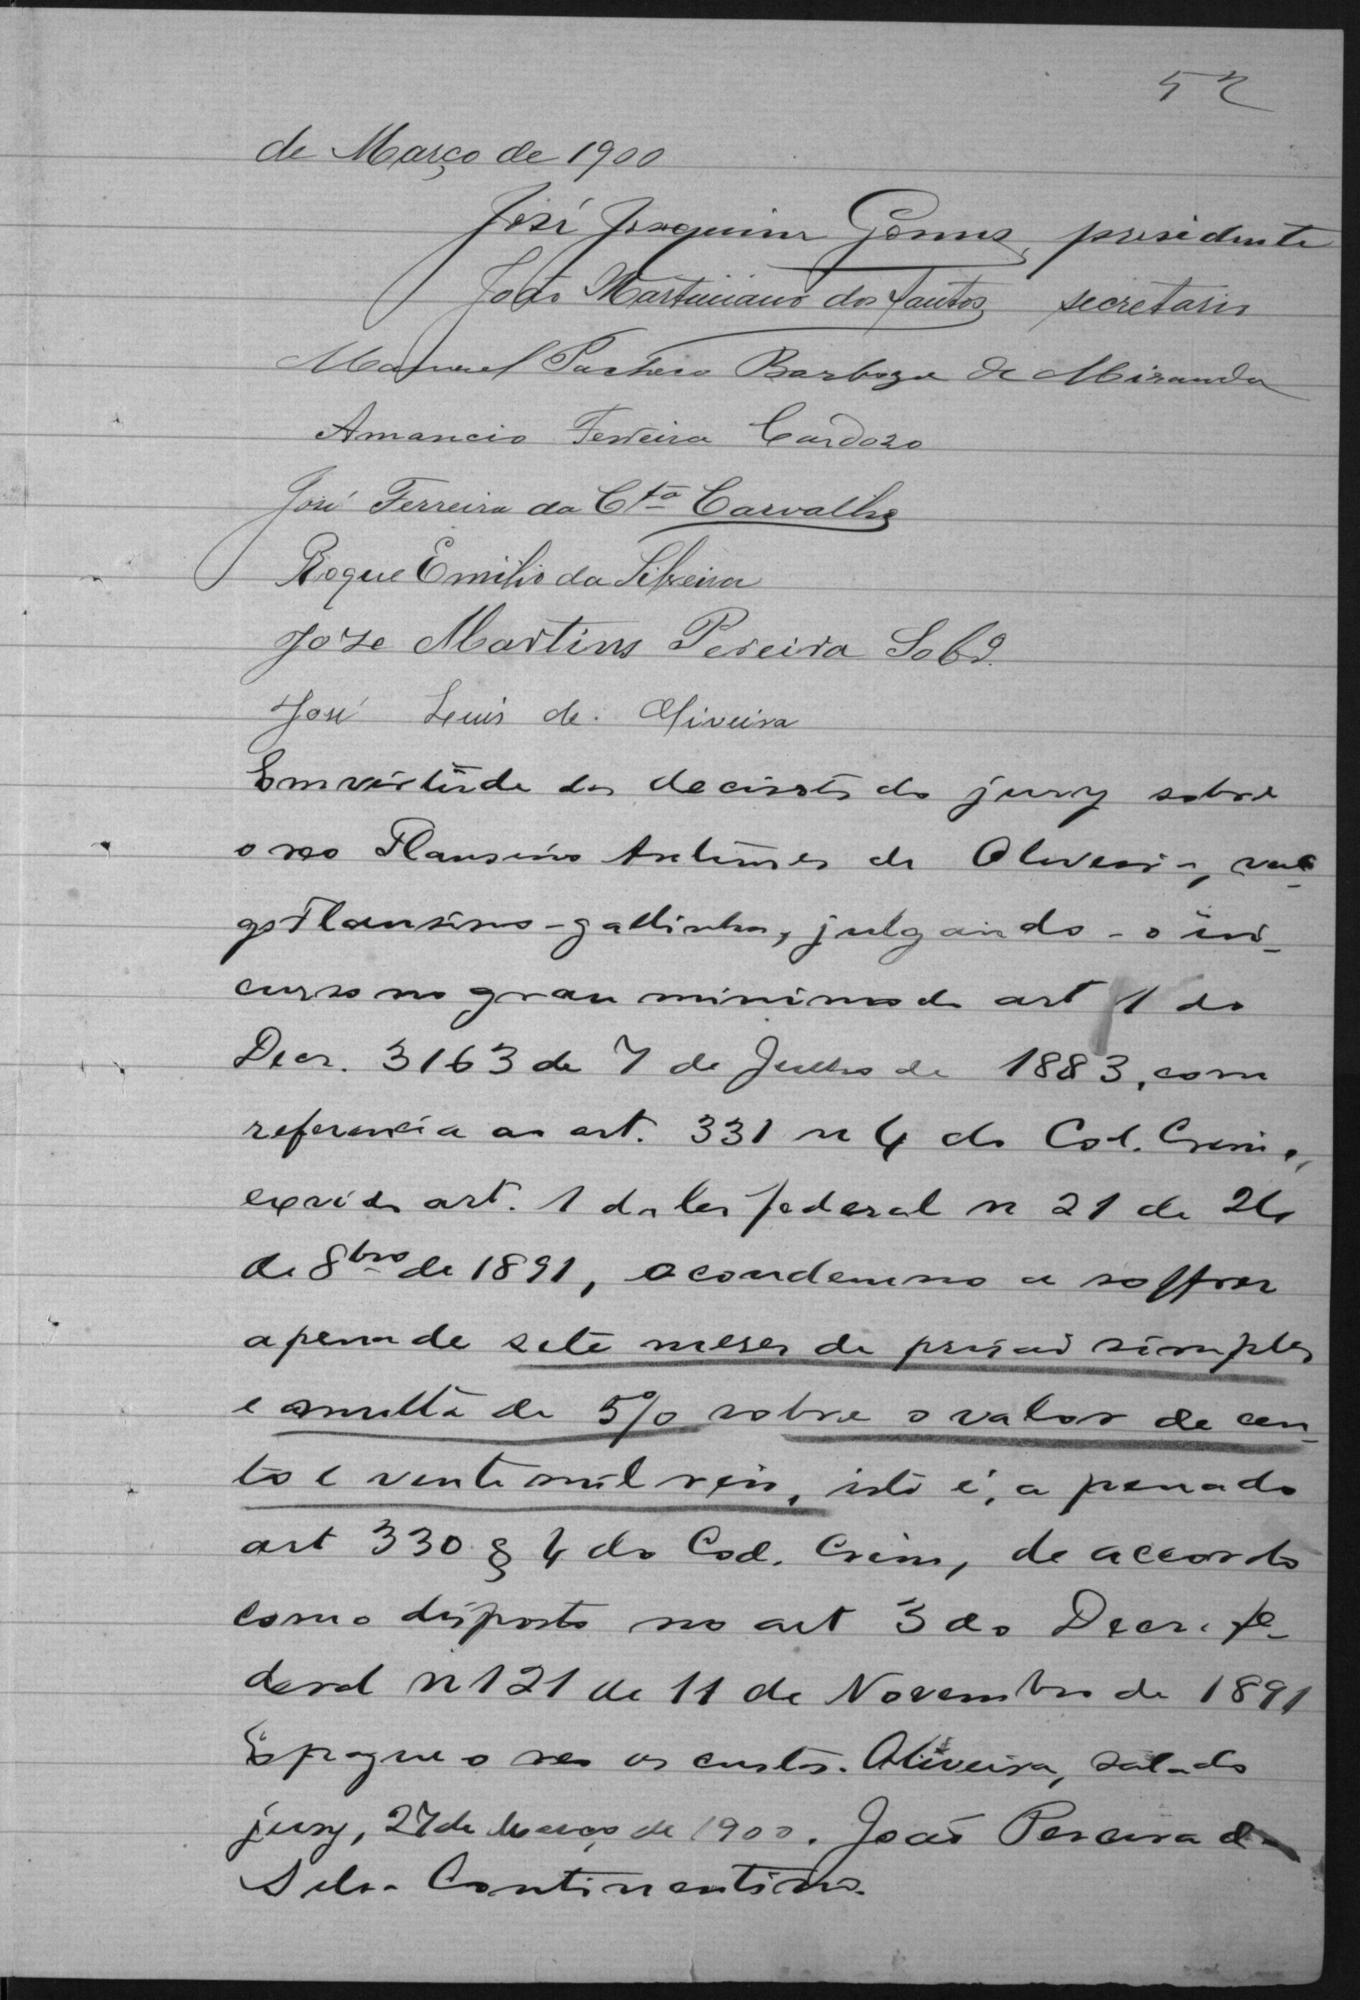 52
de Março de 1900
José Joaquim Gomes, presidente
João Martiniano dos Santos secretario
Manuel Pacheco Barboza de Miranda
Amancio Ferreira Cardozo
José Ferreira da Cta Carvalho
Roque Emilio da Silveira
Joze Martins Pereira Sobo.
José Luis de Oliveira
Em virtude das decisões do jury sobre
o reo Flausino Antunes de Oliveira, vul-
go Flausino-gallinha, julgando-o in-
curso no grau minimo do art 1 do
Decr. 3163 de 7 de Julho de 1883, com
referencia ao art. 331 n 4 do Cod. Crim.,
ex vi do art. 1 da lei federal n 21 de 24
de 8bro de 1891, o condemno a soffrer
a pena de sete meses de prisão simples
e a multa de 5% sobre o valor de cen-
to e vente mil reis, isto é, a pena do
art 330 § 4 do Cod. Crim, de accordo
com o disposto no art 3 do Decr. fe-
deral n 121 de 11 de Novembro de 1891
E pague o reo as custas. Oliveira, sala do
jury, 27 de Março de 1900. João Pereira da
Silva Continentino.